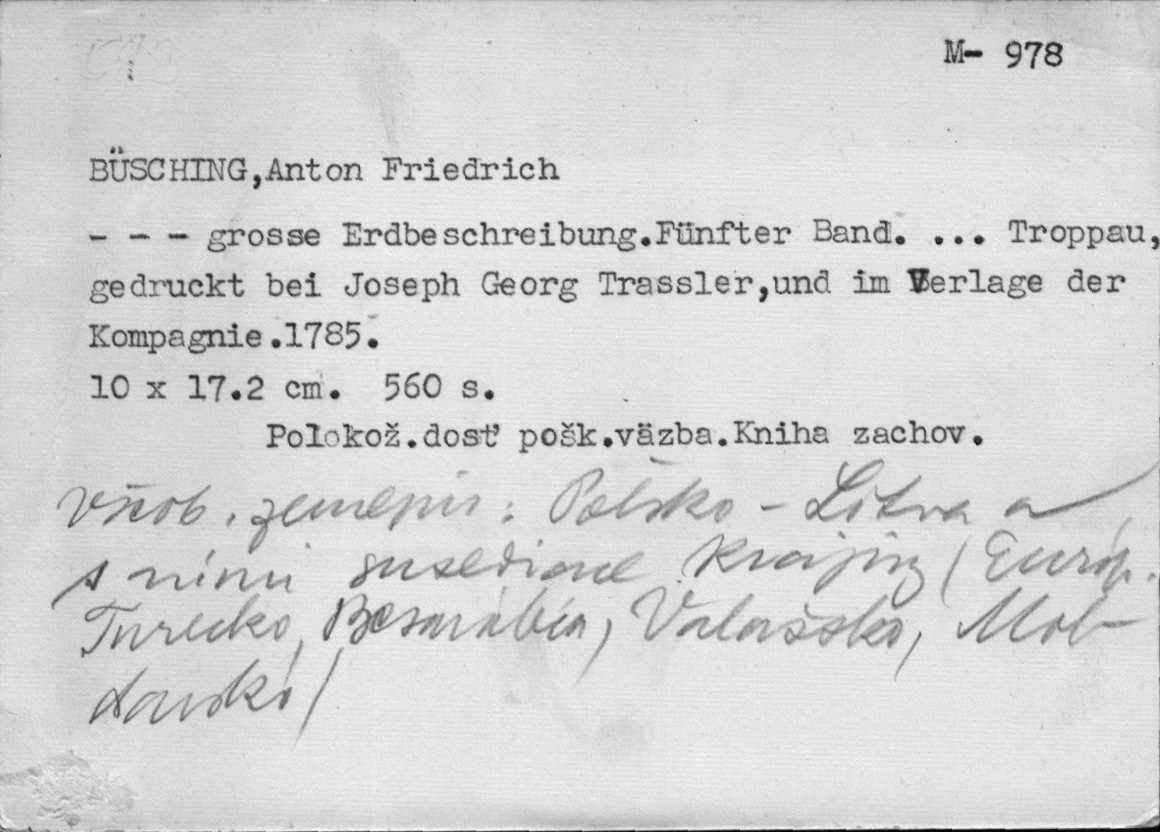 M- 978
BÜSCHING,Anton Friedrich
- - - grosse Erdbeschreibung.Fünfter Band. ... Troppau,
gedruckt bei Joseph Georg Trassler,und im Verlage der
Kompagnie.1785.
10 x 17.2 cm. 560 s.
Polokož.dosť pošk.väzba.Kniha zachov.
Všeob. zemepis: Poľsko - Litva a
s nimi susediace krajiny (Európ.
Turecko, Besarábia, Valašsko, Mol-
davsko)